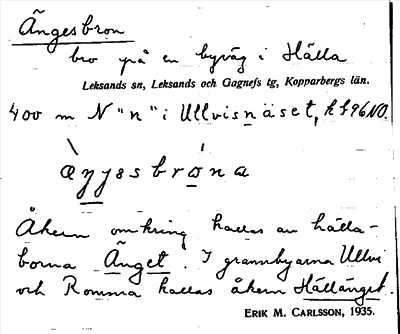 Ängesbron
bro på en byväg i Hälla
Leksands sn, Leksands och Gagnefs tg, Kopparbergs län.
400 m N "n" i Ullvisnäset, k f 96 NO.
æŋɡesbrona
Åkern omkring kallas av hälla-
borna Änget. I grannbyarna Ullvi
och Romma kallas åkern Hälländet.
ERIK M. CARLSSON, 1935.